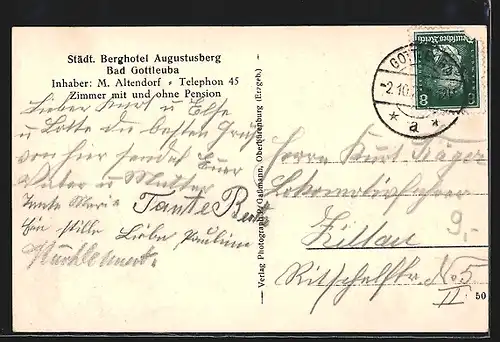 Städt. Berghotel Augustusberg
Bad Gottleuba
Inhaber: M. Altendorf - Telephon 45
Zimmer mit und ohne Pension
Lieber Kurt u Else
u Lotte die besten Grüße
von hier sendet Euer
Vater u Mutter
Tante Marie
Tante Berta
Liebe Pauline
Verlag Photograph Gaßmann, Oberfrauenburg (Erzgeb.)
Deutsches Reich
8
8
GOTT
2.10.
* a *
Herrn Kurt Jäger
Lokomotivführer
Zittau
9,-
Ritschelstr. No 5
II
50